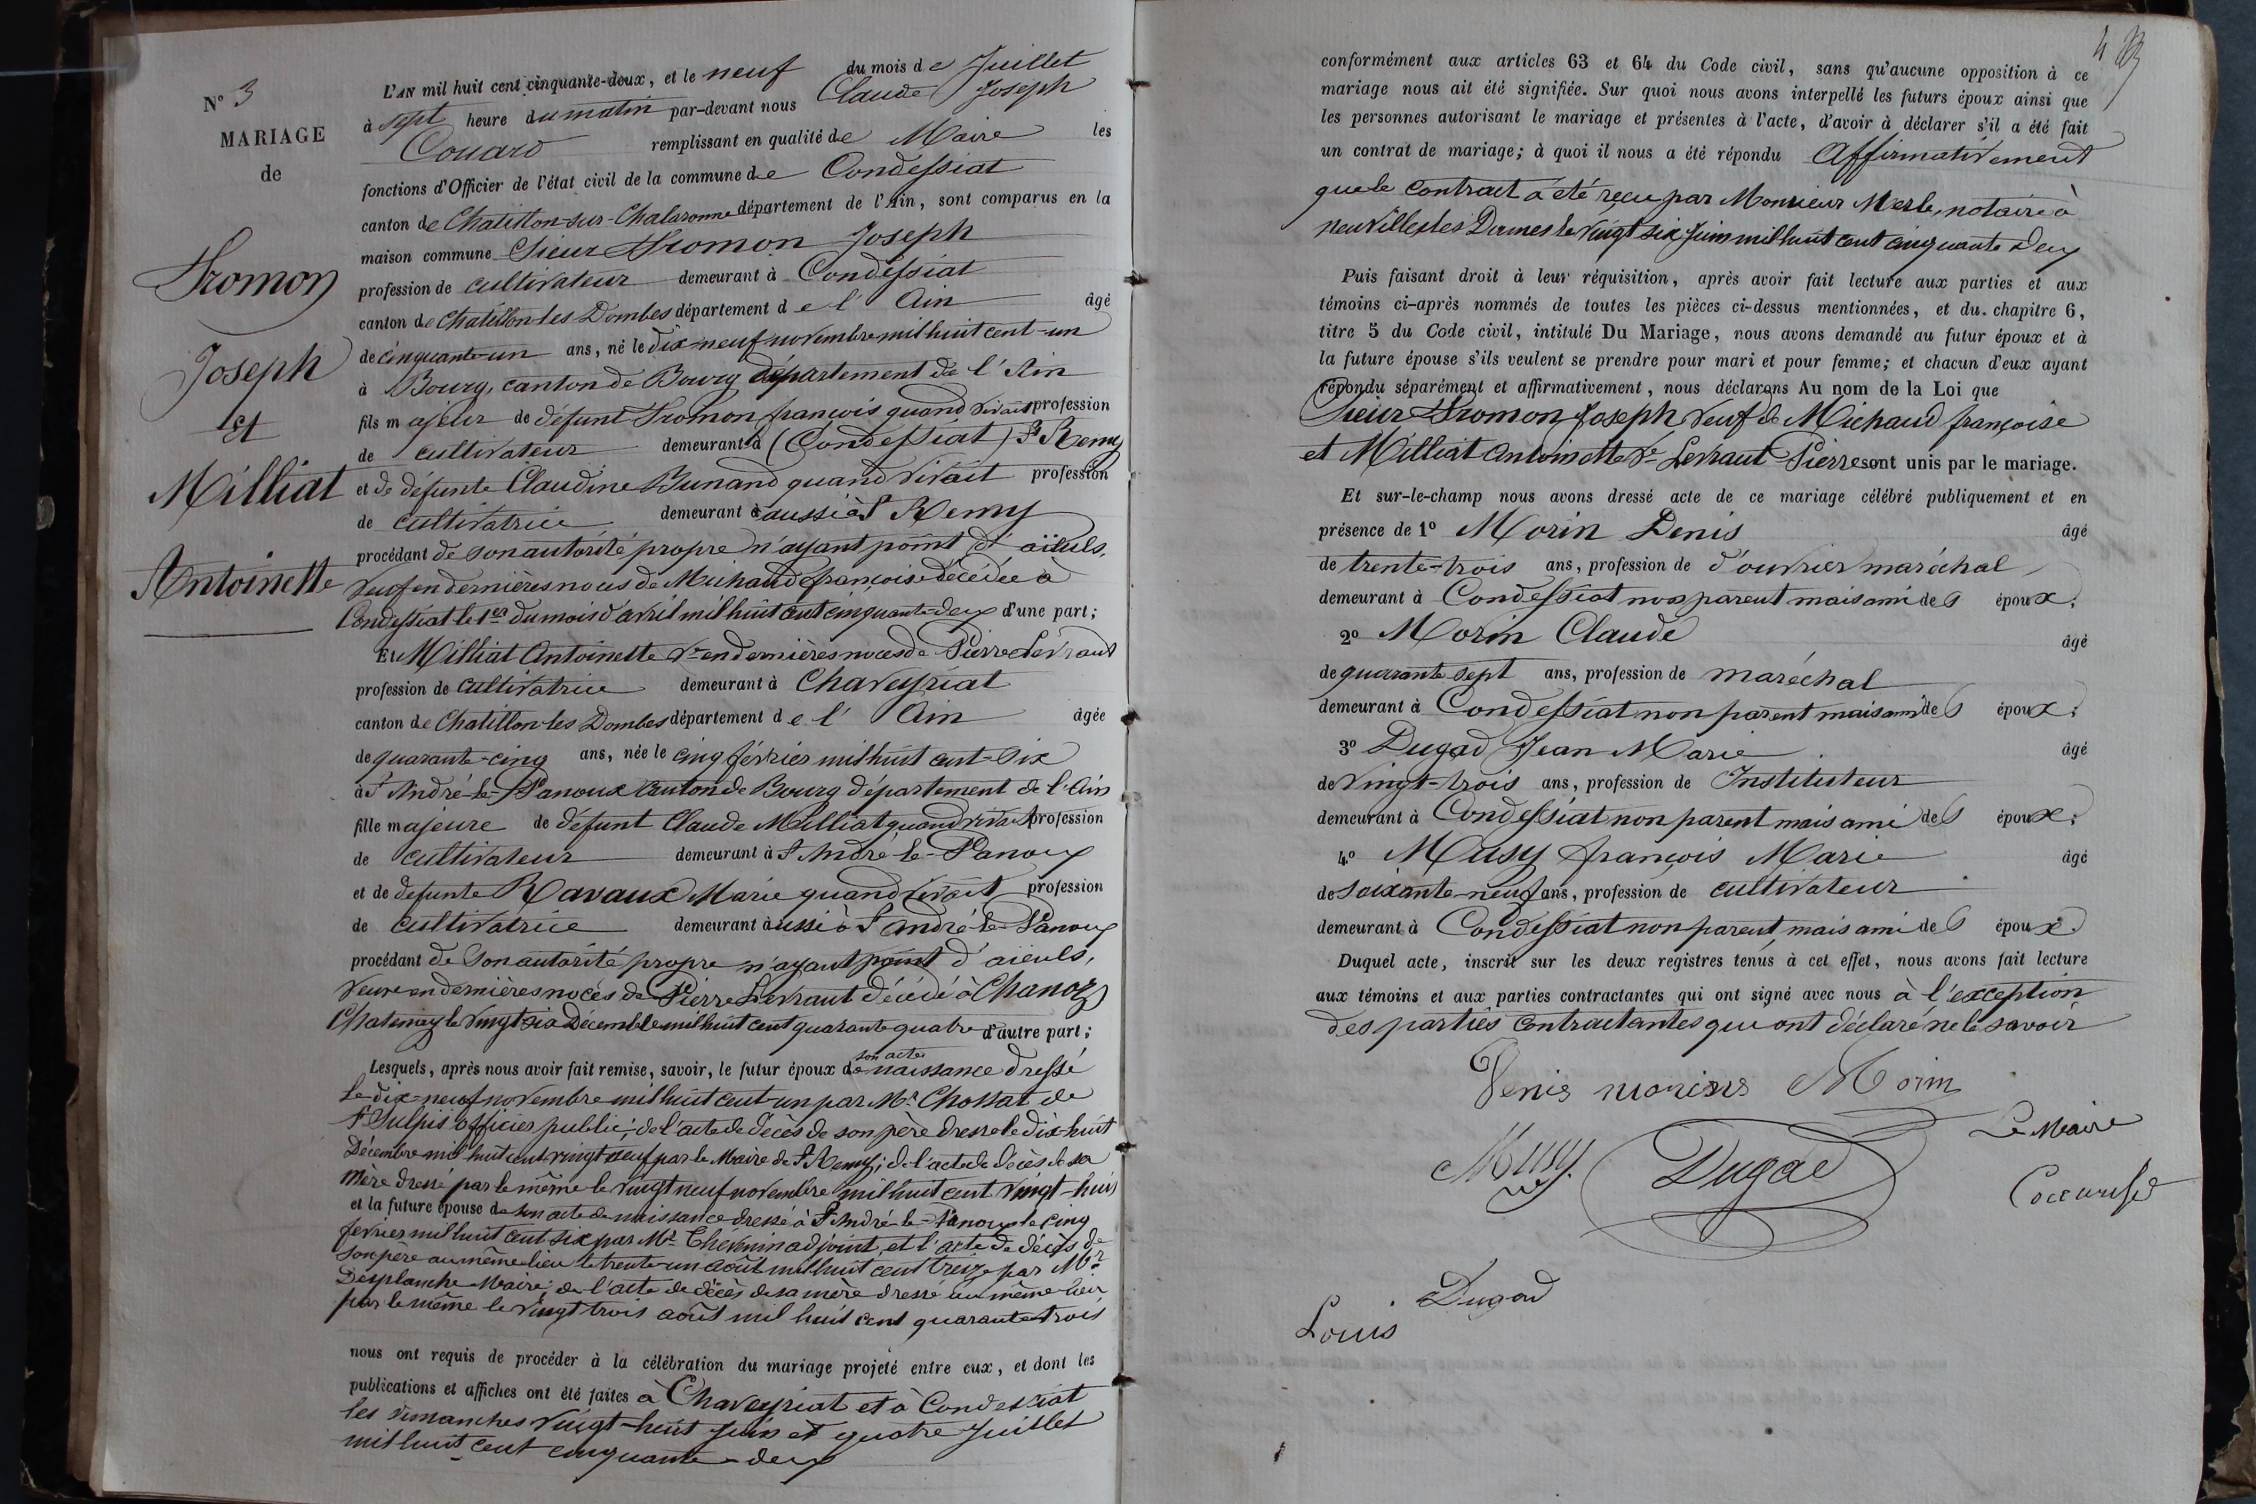 N° 3
MARIAGE
de
Fromon
Joseph
et
Milliat
Antoinette
L'AN mil huit cent cinquante-deux, et le neuf du mois de Juillet
à sept heure du matin par-devant nous Claude Joseph
Couard remplissant en qualité de Maire les
fonctions d'Officier de l'état civil de la commune de Condessiat
canton de Chatillon-sur-Chalaronne département de l'Ain, sont comparus en la
maison commune Sieur Fromon Joseph
profession de cultivateur demeurant à Condessiat
canton de Chatillon-les Dombes département de l'Ain âgé
de cinquante-un ans, né le dix-neuf novembre mil huit cent-un
à Bourg, canton de Bourg département de l'Ain
fils majeur de défunt Fromon françois quand vivait profession
de cultivateur demeurant à (Condessiat) St Remy
et de défunte Claudine Bunand quand vivait profession
de cultivatrice demeurant à aussi à St Remy
procédant de son autorité propre n'ayant point d'aïeuls,
veuf en dernières noces de Michaud françoise décédée à
Condessiat le 1er du mois d'avril mil huit cent cinquante-deux d'une part;
Et Milliat Antoinette Ve en dernières noces de Pierre Levraut
profession de cultivatrice demeurant à Chaveyriat
canton de Chatillon-les Dombes département de l'Ain âgée
de quarante-cinq ans, née le cinq février mil huit cent-six
à St André-le-Panoux canton de Bourg département de l'Ain
fille majeure de défunt Claude Milliat quand vivait profession
de cultivateur demeurant à St André-le-Panoux
et de defunte Ravaux Marie quand vivait profession
de cultivatrice demeurant aussi à St André-le-Panoux
procédant de son autorité propre n'ayant point d'aïeuls,
veuve en dernières noces de Pierre Levraut décédé à Chanoz
Chatenay le vingt six Décembre mil huit cent quarante quatre d'autre part;
Lesquels, après nous avoir fait remise, savoir, le futur époux de son acte naissance dressé
le dix-neuf novembre mil huit cent un par Mr Chossat de
St Sulpis officier public; de l'acte de décès de son père dressé le dix-huit
Décembre mil huit cent vingt neuf par le Maire de St Remy; de l'acte de décès de sa
mère dressé par le même le vingt neuf novembre mil huit cent vingt-huit
et la future épouse de son acte de naissance dressé à St André-le-Panoux le cinq
fevrier mil huit cent six par Mr Thévenin adjoint, et l'acte de décès de
son père au même lieu le trente-un août mil huit cent treize par Mr
Desplanche Maire; de l'acte de décès de sa mère dressé au même lieu
par le même le vingt trois août mil huit cent quarante trois
nous ont requis de procéder à la célébration du mariage projeté entre eux, et dont les
publications et affiches ont été faites à Chaveyriat et à Condessiat
les dimanches vingt-huit Juin et quatre Juillet
mil huit cent cinquante-deux
conformément aux articles 63 et 64 du Code civil, sans qu'aucune opposition à ce
mariage nous ait été signifiée. Sur quoi nous avons interpellé les futurs époux ainsi que
les personnes autorisant le mariage et présentes à l'acte, d'avoir à déclarer s'il a été fait
un contrat de mariage; à quoi il nous a été répondu Affirmativement
que le contract a été reçu par Monsieur Merle, notaire à
neuville les Dames le vingt six Juin mil huit cent cinquante deux
Puis faisant droit à leur réquisition, après avoir fait lecture aux parties et aux
témoins ci-après nommés de toutes les pièces ci-dessus mentionnées, et du chapitre 6,
titre 5 du Code civil, intitulé Du Mariage, nous avons demandé au futur époux et à
la future épouse s'ils veulent se prendre pour mari et pour femme; et chacun d'eux ayant
répondu séparément et affirmativement, nous déclarons Au nom de la Loi que
Sieur Fromon Joseph veuf de Michaud françoise
et Milliat Antoinette Ve Levraut Pierre sont unis par le mariage.
Et sur-le-champ nous avons dressé acte de ce mariage célébré publiquement et en
présence de 1° Morin Denis âgé
de trente-trois ans, profession de d'ouvrier maréchal
demeurant à Condessiat non parent mais ami des époux;
2° Morin Claude âgé
de quarante sept ans, profession de maréchal
demeurant à Condessiat non parent mais ami des époux;
3° Dugad Jean Marie âgé
de vingt-trois ans, profession de Instituteur
demeurant à Condessiat non parent mais ami des époux;
4° Musy françois Marie âgé
de soixante-neuf ans, profession de cultivateur
demeurant à Condessiat non parent mais ami des époux
Duquel acte, inscrit sur les deux registres tenus à cet effet, nous avons fait lecture
aux témoins et aux parties contractantes qui ont signé avec nous à l'exception
des parties contractantes qui ont déclaré ne le savoir
Denis Morin
Musy Dugad Le Maire
Dugad
Louis